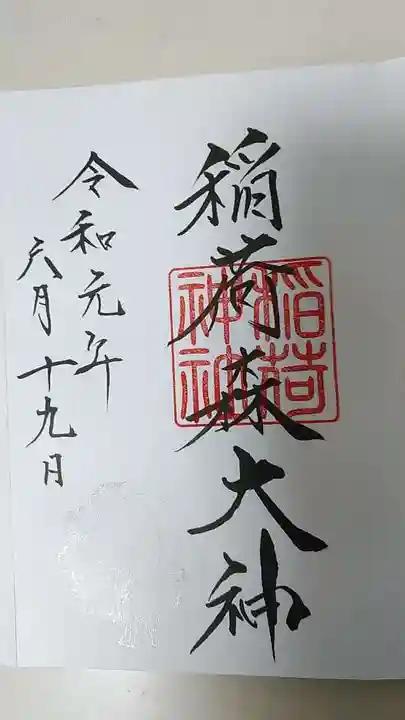 稲荷森大神
稲荷
令和元年
六月十九日